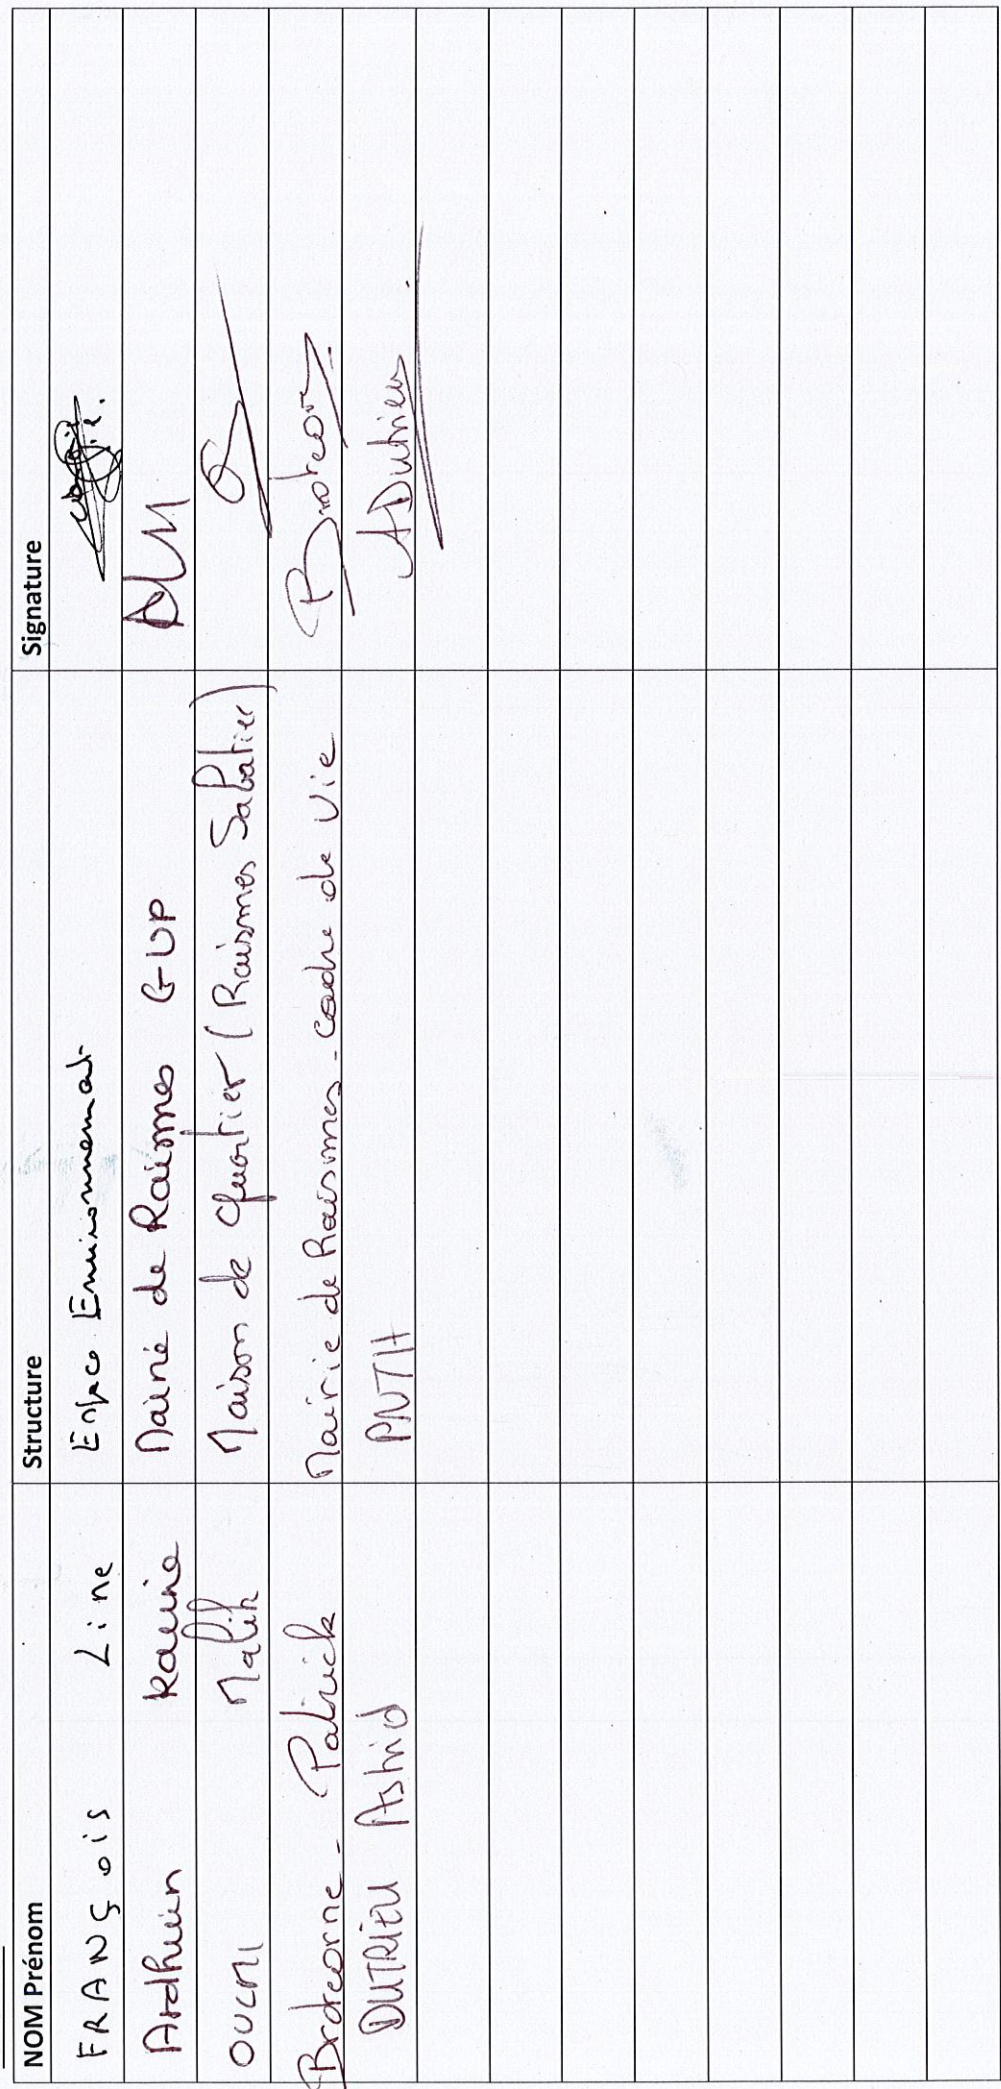 NOM Prénom Structure Signature
FRANÇOIS Line Espace Environnement
Ardhuin Karine Mairie de Raismes GUP
Malik Maison de Quartier (Raismes Sabatier)
Patrick Mairie de Raismes - Cadre de Vie
DUTRIEU Astrid PNTH ADutrieu